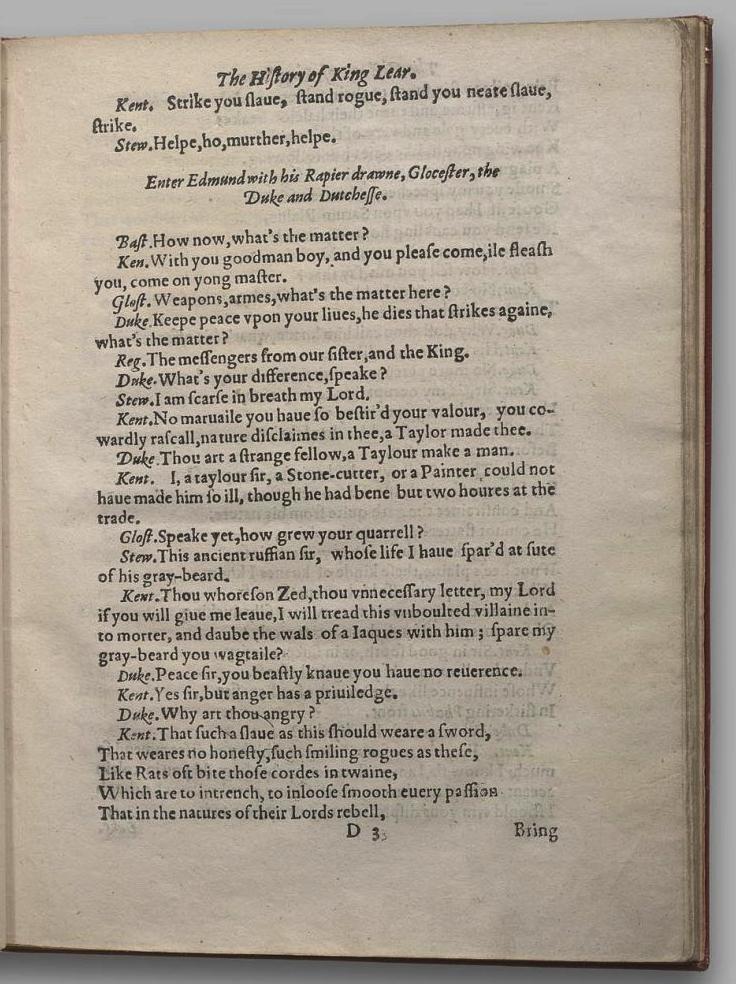 The Hiſtory of King Lear.
Kent. Strike you ſlaue, ſtand rogue, ſtand you neate ſlaue,
ſtrike.
Stew.Helpe,ho,murther,helpe.
Enter Edmund with his Rapier drawne, Gloceſter, the
Duke and Dutcheſſe.
Baſt.How now,what's the matter?
Ken.With you goodman boy, and you pleaſe come,ile fleaſh
you, come on yong maſter.
Gloſt. Weapons,armes,what's the matter here?
Duke.Keepe peace vpon your liues,he dies that ſtrikes againe,
what's the matter?
Reg.The meſſengers from our ſiſter,and the King.
Duke.What's your difference,ſpeake?
Stew.I am ſcarſe in breath my Lord.
Kent.No maruaile you haue ſo beſtir'd your valour, you co-
wardly raſcall,nature diſclaimes in thee,a Taylor made thee.
Duke.Thou art a ſtrange fellow,a Taylour make a man.
Kent. I, a taylour ſir, a Stone-cutter, or a Painter could not
haue made him ſo ill, though he had bene but two houres at the
trade.
Gloſt.Speake yet,how grew your quarrell?
Stew.This ancient ruffian ſir, whoſe life I haue ſpar'd at ſute
of his gray-beard.
Kent.Thou whoreſon Zed,thou vnneceſſary letter, my Lord
if you will giue me leaue,I will tread this vnboulted villaine in-
to morter, and daube the wals of a Iaques with him; ſpare my
gray-beard you wagtaile?
Duke.Peace ſir,you beaſtly knaue you haue no reuerence.
Kent.Yes ſir,but anger has a priuiledge.
Duke.Why art thou angry?
Kent.That ſuch a ſlaue as this ſhould weare a ſword,
That weares no honeſty,ſuch ſmiling rogues as theſe,
Like Rats oft bite thoſe cordes in twaine,
Which are to intrench, to inlooſe ſmooth euery paſſion
That in the natures of their Lords rebell,
D 3
Bring